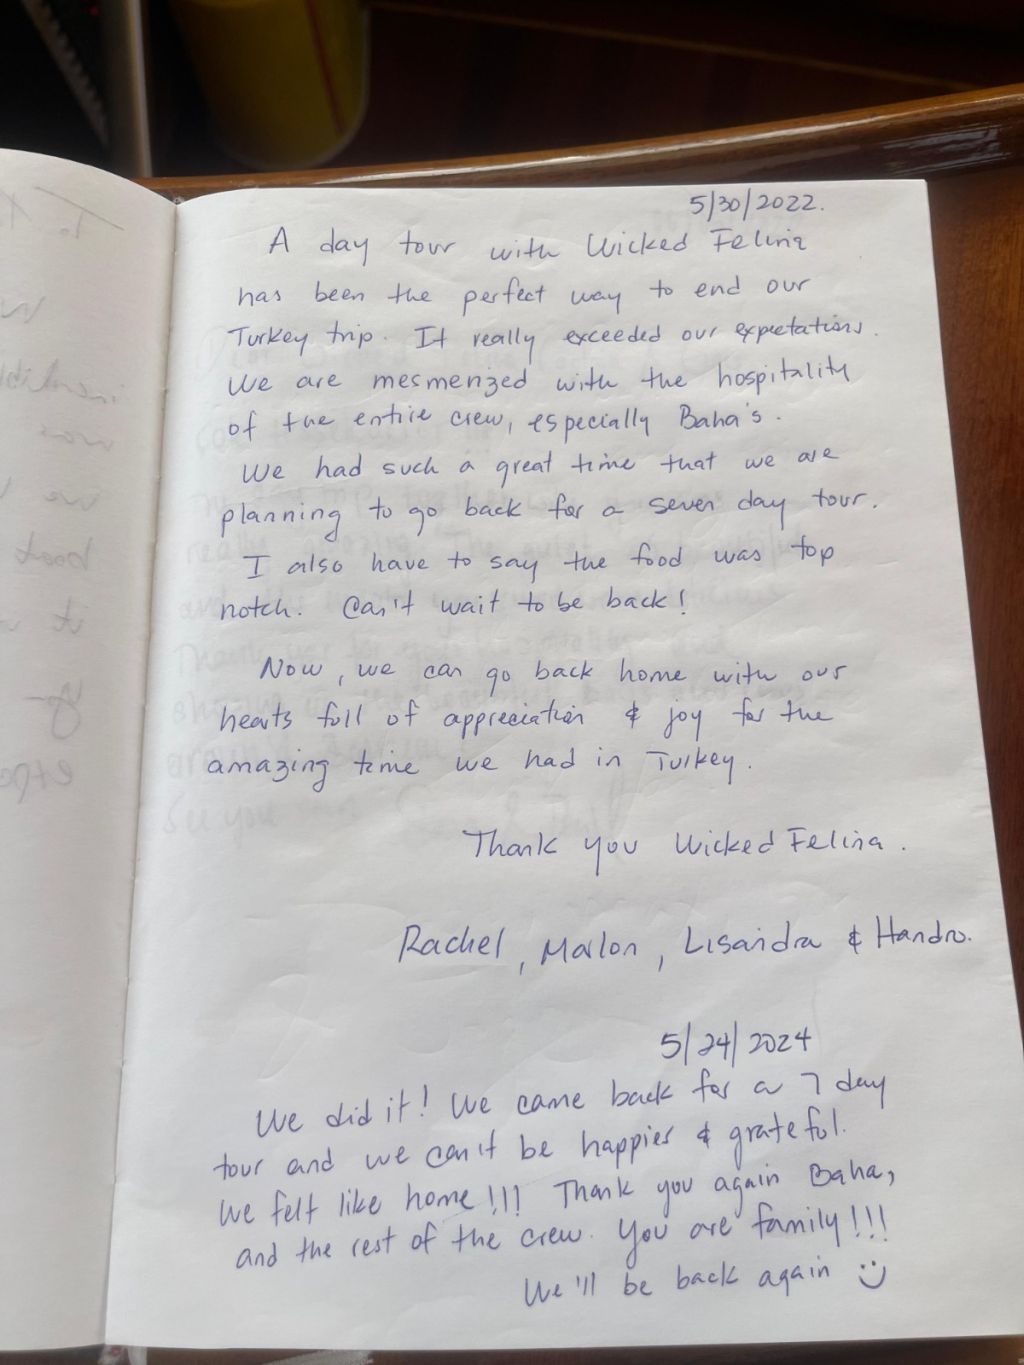 5/30/2022.
A day tour with Wicked Felina
has been the perfect way to end our
Turkey trip. It really exceeded our expectations.
We are mesmerized with the hospitality
of the entire crew, especially Baha's.
We had such a great time that we are
planning to go back for a seven day tour.
I also have to say the food was top
notch. Can't wait to be back!
Now, we can go back home with our
hearts full of appreciation & joy for the
amazing time we had in Turkey.
Thank you Wicked Felina.
Rachel, Marlon, Lisandra & Handro.
5/24/2024
We did it! We came back for a 7 day
tour and we can't be happier & grateful.
We felt like home!!! Thank you again Baha,
and the rest of the crew. You are family!!!
We'll be back again :)